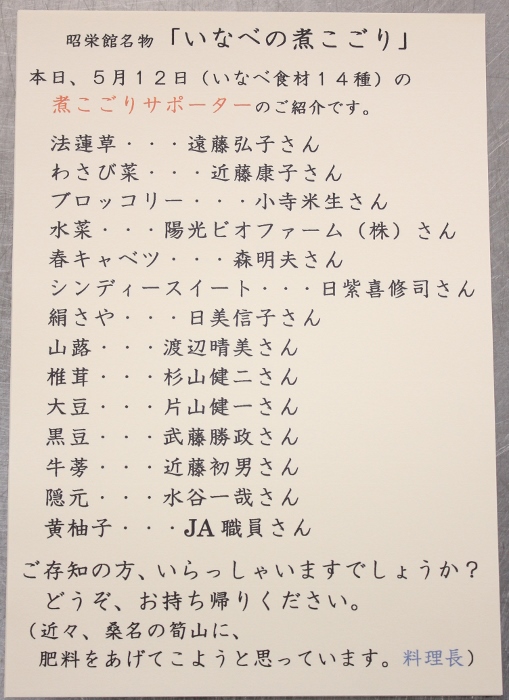 昭栄館名物「いなべの煮こごり」
本日、５月１２日（いなべ食材１４種）の
煮こごりサポーターのご紹介です。
法蓮草・・・遠藤弘子さん
わさび菜・・・近藤康子さん
ブロッコリー・・・小寺米生さん
水菜・・・陽光ビオファーム（株）さん
春キャベツ・・・森明夫さん
シンディースイート・・・日紫喜修司さん
絹さや・・・日美信子さん
山蕗・・・渡辺晴美さん
椎茸・・・杉山健二さん
大豆・・・片山健一さん
黒豆・・・武藤勝政さん
牛蒡・・・近藤初男さん
隠元・・・水谷一哉さん
黄柚子・・・JA職員さん
ご存知の方、いらっしゃいますでしょうか？
どうぞ、お持ち帰りください。
（近々、桑名の筍山に、
肥料をあげてこようと思っています。料理長）